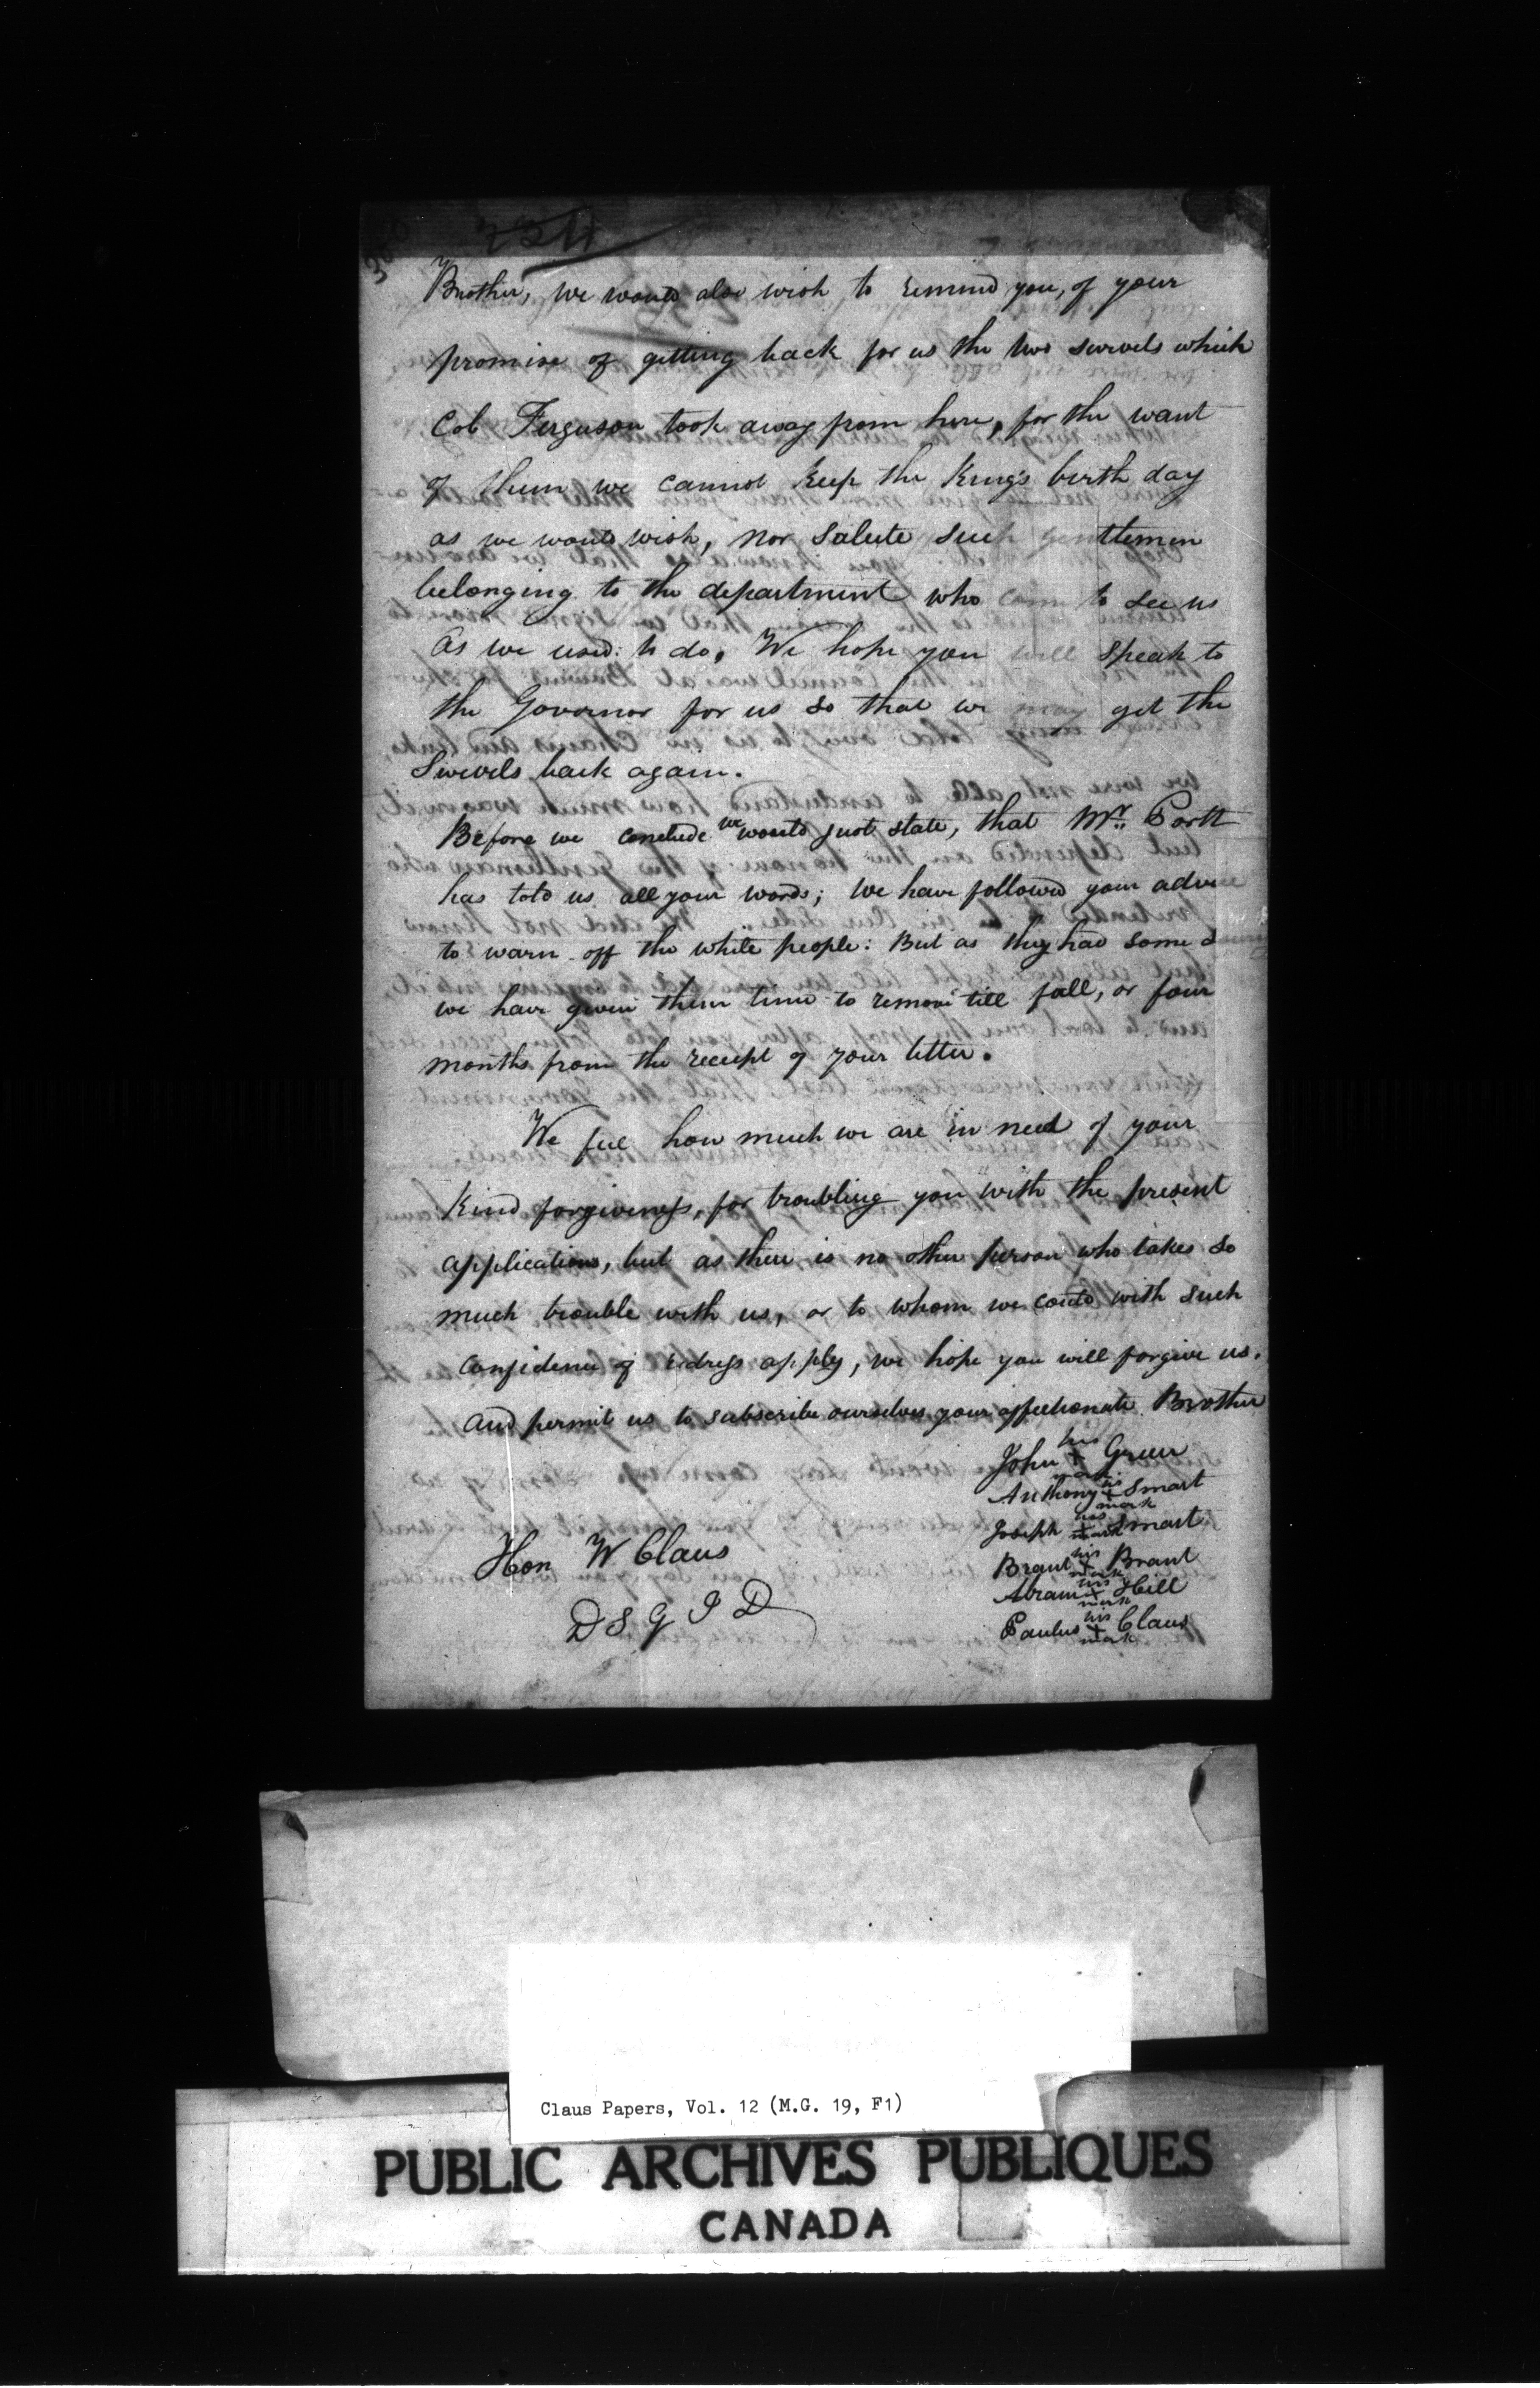 234
Brother, we would also wish to remind you, of your
promise of getting back for us the two swivels which
Col Ferguson took away from here, for the want
of them we cannot keep the King's birth day
as we would wish, nor Salute such gentlemen
belonging to the department who come to see us
as we used to do. We hope you will speak to
the Governor for us so that we may get the
Swivels back again.
Before we conclude we would just state, that Mr. Portt
has told us all your words; we have followed your advice
to warn off the white people: But as they had some
we have given them time to remove till fall, or four
months from the receipt of your letter.
We feel how much we are in need of your
kind forgiveness, for troubling you with the present
applications, but as there is no other person who takes so
much trouble with us, or to whom we could with such
confidence of redress apply, we hope you will forgive us.
and permit us to subscribe ourselves your affectionate Brother
John his + mark Green
Anthony his + mark Smart
Joseph his + mark Smart
Brant his + mark Brant
Abram his + mark Hill
Paulus his + mark Claus
Hon W Claus
D S G I D
Claus Papers, Vol. 12 (M.G. 19, F1)
PUBLIC ARCHIVES PUBLIQUES
CANADA